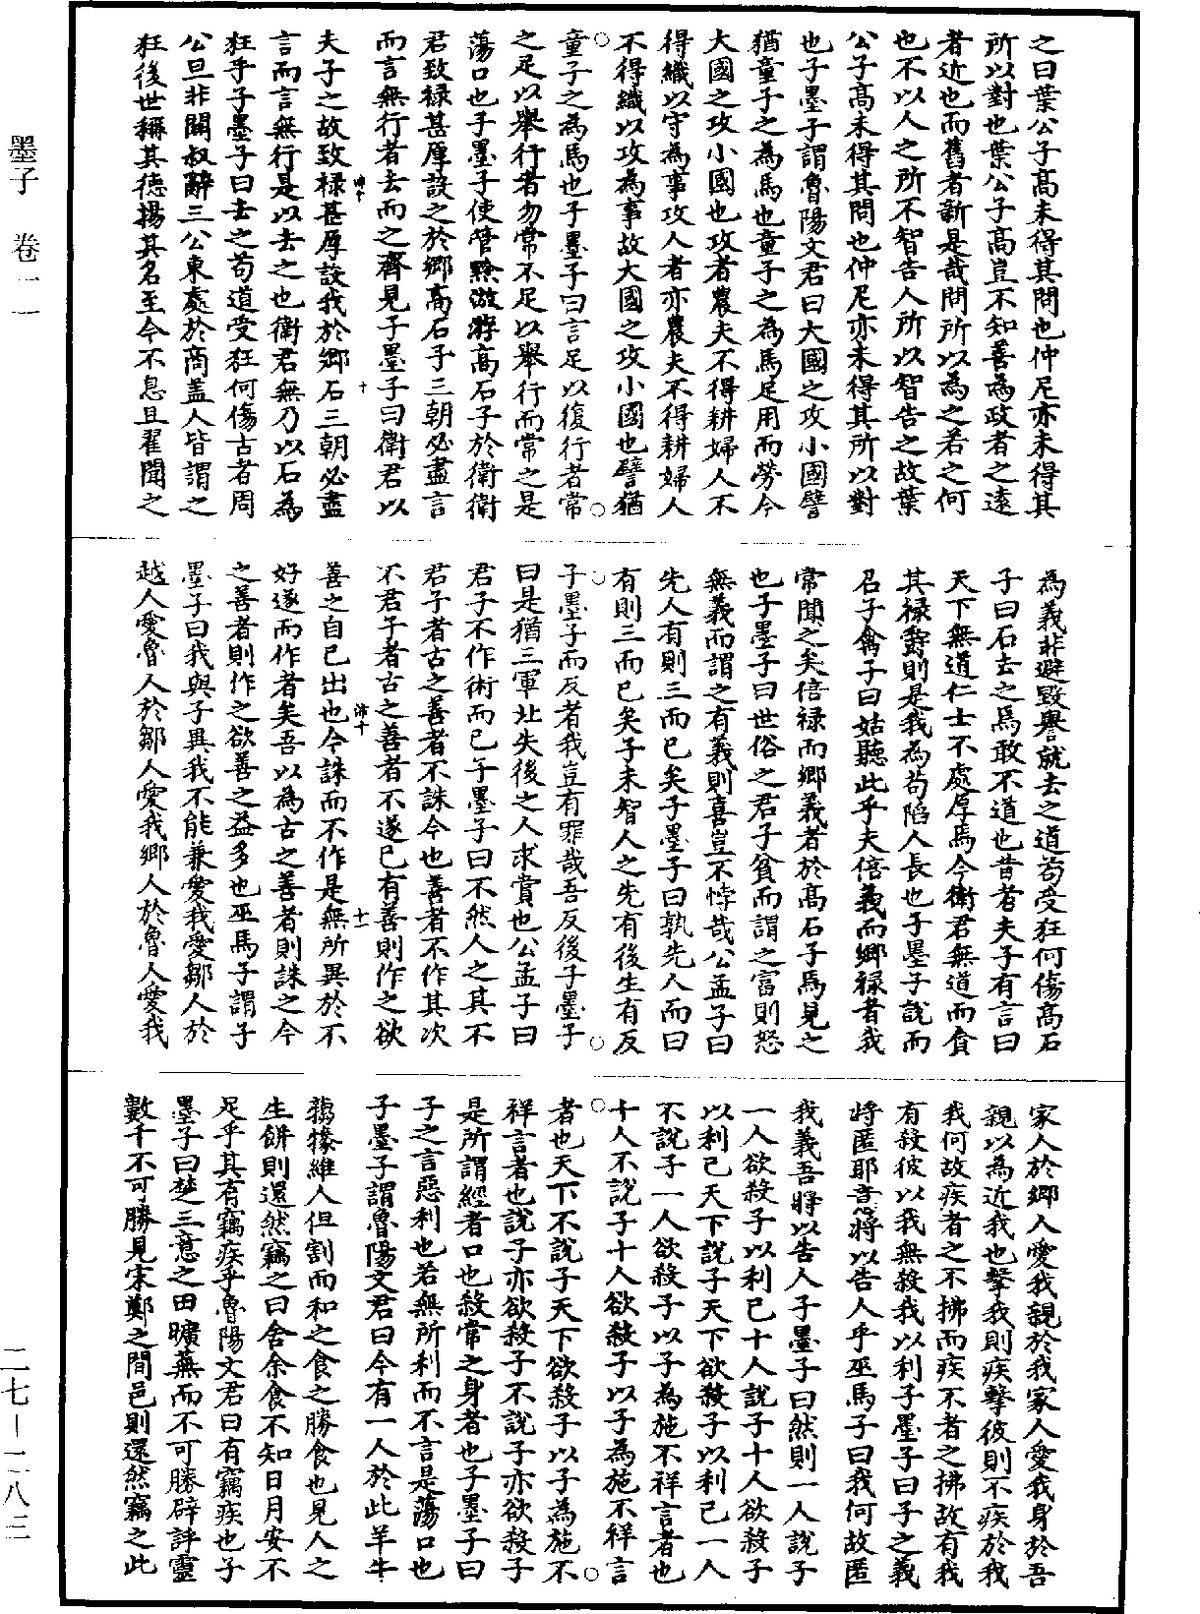 墨子　卷一一
二七—二八三
之曰葉公子高未得其問也仲尼亦未得其
所以對也葉公子高豈不知善為政者之遠
者近也而舊者新是哉問所以為之若之何
也不以人之所不智告人所以智告之故葉
公子高未得其問也仲尼亦未得其所以對
也子墨子謂魯陽文君曰大國之攻小國譬
猶童子之為馬也童子之為馬足用而勞今
大國之攻小國也攻者農夫不得耕婦人不
得織以守為事攻人者亦農夫不得耕婦人
不得織以攻為事故大國之攻小國也譬猶
童子之為馬也子墨子曰言足以復行者常
之足以舉行者勿常不足以舉行而常之是
蕩口也子墨子使管黔滶游高石子於衛衛
君致祿甚厚設之於鄉高石子三朝必盡言
而言無行者去而之齊見子墨子曰衛君以
夫子之故致祿甚厚設我於鄉石三朝必盡
言而言無行是以去之也衛君無乃以石為
狂乎子墨子曰去之苟道受狂何傷古者周
公旦非關叔辭三公東處於商蓋人皆謂之
狂後世稱其德揚其名至今不息且翟聞之
為義非避毀譽就去之道苟受狂何傷高石
子曰石去之焉敢不道也昔者夫子有言曰
天下無道仁士不處厚焉今衛君無道而貪
其祿爵則是我為苟陷人長也子墨子說而
召子禽子曰姑聽此乎夫倍義而鄉祿者我
常聞之矣倍祿而鄉義者於高石子焉見之
也子墨子曰世俗之君子貧而謂之富則怒
無義而謂之有義則喜豈不悖哉公孟子曰
先人有則三而已矣子墨子曰孰先人而曰
有則三而已矣子未智人之先有後生有反
子墨子而反者我豈有罪哉吾反後子墨子
曰是猶三軍北失後之人求賞也公孟子曰
君子不作術而已子墨子曰不然人之其不
君子者古之善者不誅今也善者不作其次
不君子者古之善者不遂已有善則作之欲
善之自已出也今誅而不作是無所異於不
好遂而作者矣吾以為古之善者則誅之今
之善者則作之欲善之益多也巫馬子謂子
墨子曰我與子異我不能兼愛我愛鄒人於
越人愛魯人於鄒人愛我鄉人於魯人愛我
家人於鄉人愛我親於我家人愛我身於吾
親以為近我也擊我則疾擊彼則不疾於我
我何故疾者之不拂而疾不者之拂故有我
有殺彼以我無殺我以利子墨子曰子之義
將匿耶意將以告人乎巫馬子曰我何故匿
我義吾將以告人子墨子曰然則一人說子
一人欲殺子以利己十人說子十人欲殺子
以利己天下說子天下欲殺子以利己一人
不說子一人欲殺子以子為施不祥言者也
十人不說子十人欲殺子以子為施不祥言
者也天下不說子天下欲殺子以子為施不
祥言者也說子亦欲殺子不說子亦欲殺子
是所謂經者口也殺常之身者也子墨子曰
子之言惡利也若無所利而不言是蕩口也
子墨子謂魯陽文君曰今有一人於此羊牛
犓㹖維人但割而和之食之勝食也見人之
生餅則還然竊之曰舍余食不知日月安不
足乎其有竊疾乎魯陽文君曰有竊疾也子
墨子曰楚三意之田曠蕪而不可勝辟評靈
數千不可勝見宋鄭之間邑則還然竊之此